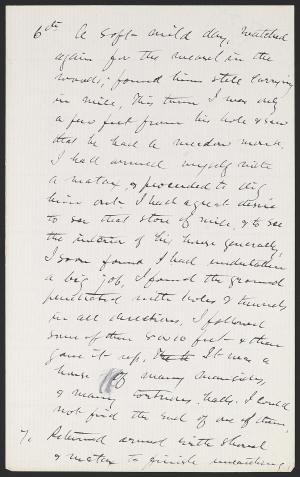 6th A soft mild day, watched
again for the weasel in the
woods; found him still carrying
in mice, This time I was only
a few feet from his hole & saw
that he had a meadow mouse.
I had armed myself with
a matax, & proceeded to dig
him out. I had a great desire
to see that store of mice, & to see
the interior of his house generally,
I soon found I had undertaken
a big job, I found the ground
penetrated with holes & tunnels
in all directions, I followed
some of them 8 or 10 feet & then
gave it up, It was a
house of many mansions,
& many tortuous halls. I could
not find the end of one of them,
7, Returned armed with shovel
& matax to finish unearthing